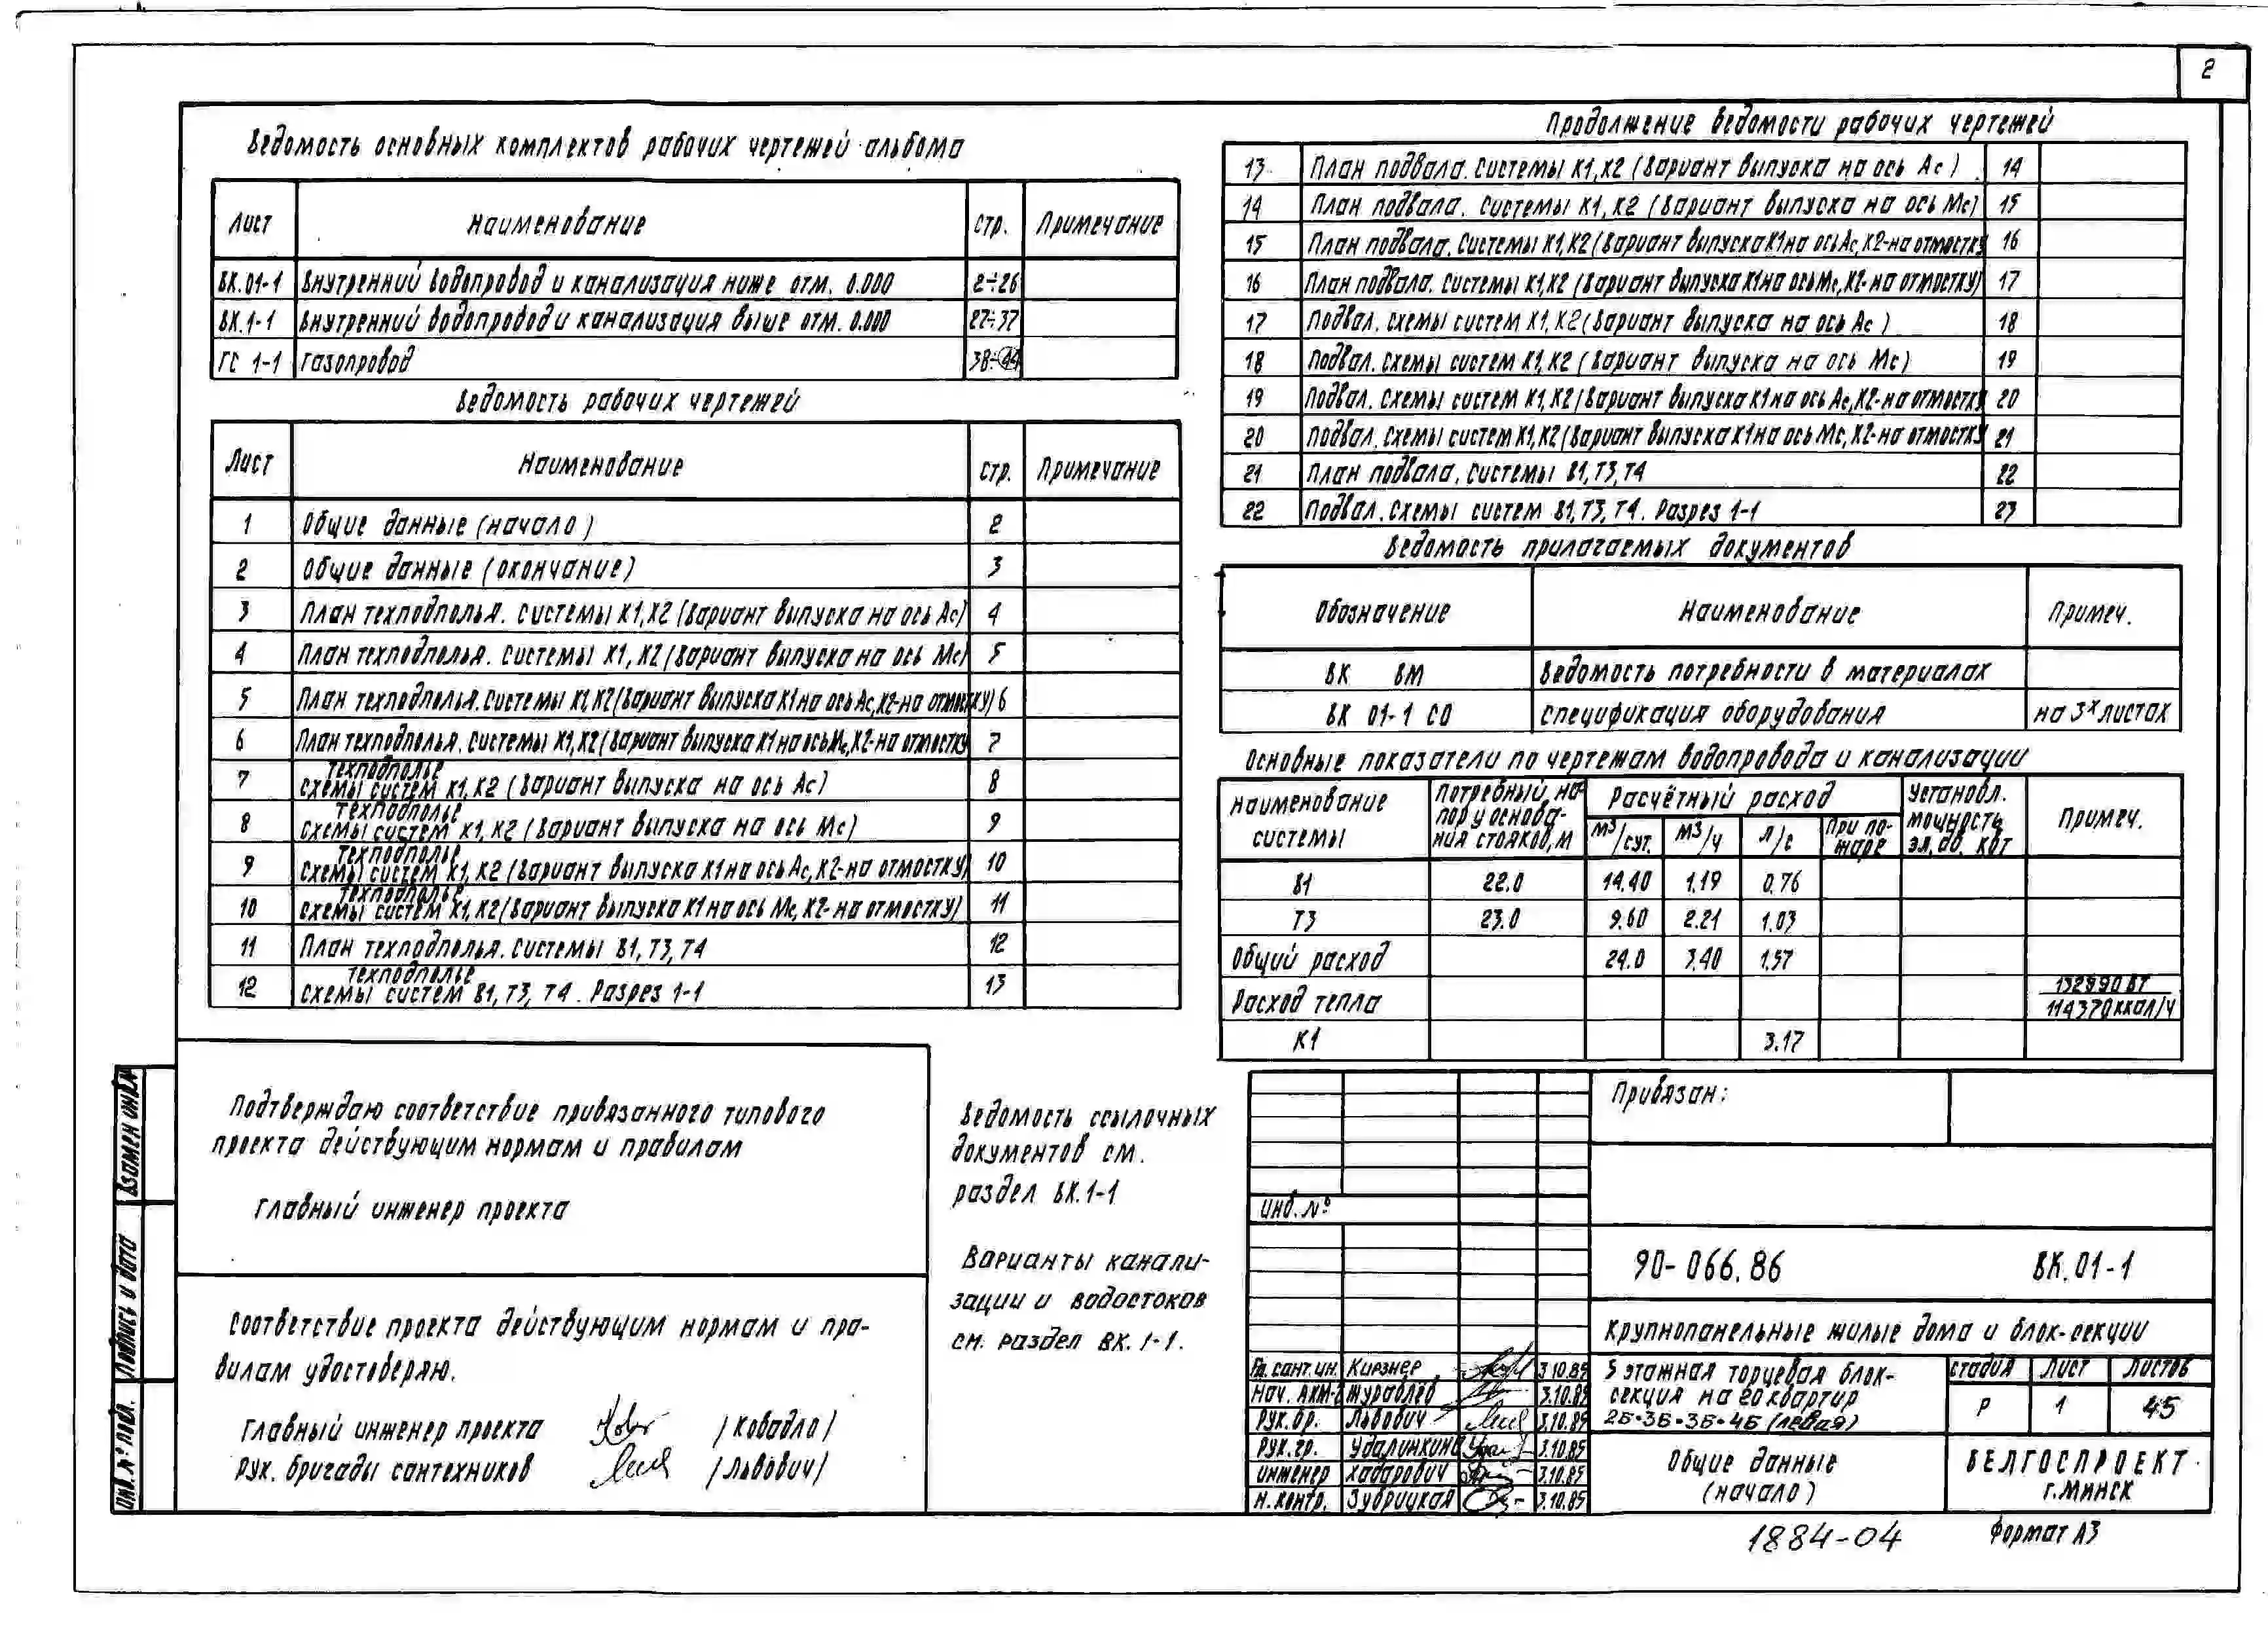 2
Ведомость основных комплектов рабочих чертежей альбома
Лист Наименование Стр. Примечание
ВК.01-1 Внутренний водопровод и канализация ниже отм. 0.000 2÷26
ВК.1-1 Внутренний водопровод и канализация выше отм. 0.000 27÷37
ГС 1-1 Газопровод 38÷44
Ведомость рабочих чертежей
Лист Наименование Стр. Примечание
1 Общие данные (начало) 2
2 Общие данные (окончание) 3
3 План техподполья. Системы К1,К2 (Вариант выпуска на ось Ас) 4
4 План техподполья. Системы К1, К2 (Вариант выпуска на ось Мс) 5
5 План техподполья. Системы К1,К2 (Вариант выпуска К1 на ось Ас,К2-на отмостку) 6
6 План техподполья. Системы К1,К2 (Вариант выпуска К1 на ось Мс,К2-на отмостку 7
7 Техподполье схемы систем К1,К2 (Вариант выпуска на ось Ас) 8
8 Техподполье схемы систем К1,К2 (Вариант выпуска на ось Мс) 9
9 Техподполье схемы систем К1,К2 (Вариант выпуска К1 на ось Ас,К2-на отмостку) 10
10 Техподполье схемы систем К1,К2 (Вариант выпуска К1 на ось Мс, К2-на отмостку) 11
11 План техподполья. Системы В1,Т3,Т4 12
12 Техподполье схемы систем В1,Т3, Т4. Разрез 1-1 13
Продолжение ведомости рабочих чертежей
13 План подвала. Системы К1,К2 (Вариант выпуска на ось Ас) 14
14 План подвала. Системы К1,К2 (Вариант выпуска на ось Мс) 15
15 План подвала. Системы К1,К2 (Вариант выпуска К1 на ось Ас, К2-на отмостку 16
16 План подвала. Системы К1,К2 (Вариант выпуска К1 на ось Мс, К2-на отмостку) 17
17 Подвал. Схемы систем К1,К2 (Вариант выпуска на ось Ас) 18
18 Подвал. Схемы систем К1,К2 (Вариант выпуска на ось Мс) 19
19 Подвал. Схемы систем К1,К2 (Вариант выпуска К1 на ось Ас,К2-на отмостку 20
20 Подвал. Схемы систем К1,К2 (Вариант выпуска К1 на ось Мс, К2-на отмостку 21
21 План подвала. Системы В1,Т3,Т4 22
22 Подвал. Схемы систем В1,Т3,Т4. Разрез 1-1 23
Ведомость прилагаемых документов
Обозначение Наименование Примеч.
ВК ВМ Ведомость потребности в материалах
ВК 01-1 СО Спецификация оборудования на 3х листах
Основные показатели по чертежам водопровода и канализации
Наименование системы Потребный напор у основания стояков, м Расчётный расход Установл. мощность эл.дв. кВт Примеч.
м3/сут. м3/ч л/с При пожаре
В1 22.0 14.40 1.19 0.76
Т3 23.0 9.60 2.21 1.03
Общий расход 24.0 3.40 1.57
Расход тепла 132990 Вт
114370 ккал/ч
К1 3.17
Подтверждаю соответствие привязанного типового
проекта действующим нормам и правилам
Главный инженер проекта
Соответствие проекта действующим нормам и пра-
вилам удостоверяю.
Главный инженер проекта /Ковадло/
Рук. бригады сантехников /Львович/
Ведомость ссылочных
документов см.
раздел ВК.1-1
Варианты канали-
зации и водостоков
см. раздел ВК. 1-1.
Взамен инв.№
Подпись и дата
Инв.№ подл.
Привязан:
Инв.№
90-066.86 ВК.01-1
Крупнопанельные жилые дома и блок-секции
Гл. сант.ин. Кирзнер 3.10.85
Нач. АКМ-2 Журавлёв 3.10.85
Рук.бр. Львович 3.10.85
Рук.гр. Удалинкина 3.10.85
Инженер Хадарович 3.10.85
Н.контр. Зубрицкая 3.10.85
5 этажная торцевая блок-
секция на 20 квартир
2Б·3Б·3Б·4Б (левая)
Стадия Лист Листов
Р 1 45
Общие данные
(начало)
БЕЛГОСПРОЕКТ
г.Минск
1884-04 Формат А3